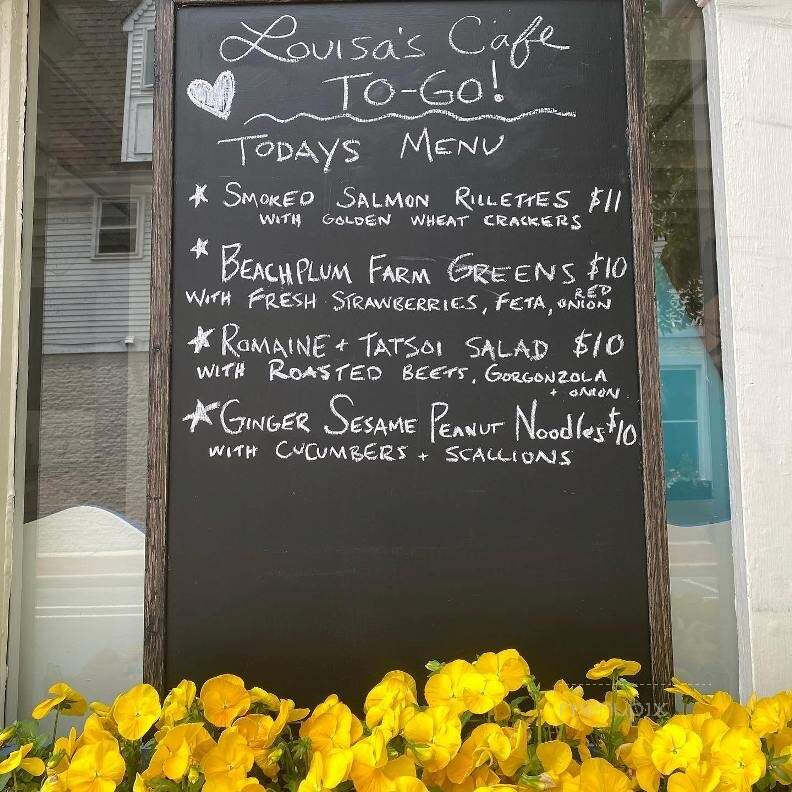 Louisa's Cafe
To-Go!
Todays Menu
* Smoked Salmon Rillettes $11
with Golden Wheat Crackers
* Beachplum Farm Greens $10
with Fresh Strawberries, Feta, Red Onion
* Romaine + Tatsoi Salad $10
with Roasted Beets, Gorgonzola
+ onion
* Ginger Sesame Peanut Noodles $10
with Cucumbers + Scallions